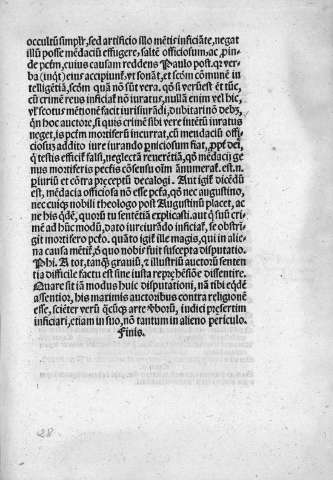 occultū simplr, sed artificio illo mētis inficiāte, negat
illū posse mēdaciū effugere, saltē officiosum, ac ꝓin-
de pctm, cuius causam reddens Paulo post. qꝛ ver-
ba (inqt) eius accipiunt, vt sonāt, et scdm cōmunē in
telligētiā, scdm quā nō sūt vera. qd si verū est, et tūc,
cū crimē reus inficiat nō iuratus, nullā enim vel hic,
vl scotus mētionē facit iurisiurādi, dubitari nō debꝫ,
qn hoc auctore, si quis crimē sibi vere intētū iuratus
neget, is pctm mortiferū incurrat, cū mendaciū offi-
ciosuꝫ addito iure iurando ꝑniciosum fiat, ꝓpt dei,
q testis efficit falsi, neglectā reuerētiā, qd mēdacij ge
nus mortiferis pctis cōsensu oīm ānumerat. est .n.
pluriū et contra pceptū decalogi. Aut igit dicēdū
est, mēdacia officiosa nō esse pctā, qd nec augustino,
nec cuiqꝫ nobili theologo post Augustinū placet, ac
ne his qdē, quorū tu sentētiā explicasti. aut q suū cri-
mē ad hūc modū, dato iureiurādo inficiat, se obstri-
git mortifero pctō. quāto igit ille magis, qui in alie-
na causa mētit, d quo nobis fuit suscepta disputatio.
Phi. A tot, tandꝫ grauiū, et illustriū auctorū senten
tia difficile factu est sine iusta reprehēsiōe dissentire.
Quare sit iā modus huic disputationi, nā tibi eqdē
assentior, his maximis auctoribus contra religionē
esse, sciēter verū qcūqꝫ arte vborū, iudici psertim
inficiari, etiam in suo, nō tantum in alieno periculo.
Finis.
28